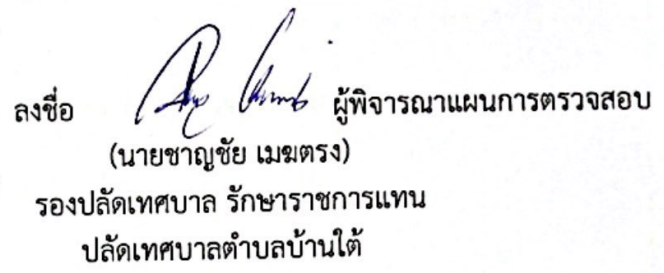 ลงชื่อ ผู้พิจารณาแผนการตรวจสอบ
(นายชาญชัย เมฆตรง)
รองปลัดเทศบาล รักษาราชการแทน
ปลัดเทศบาลตำบลบ้านใต้